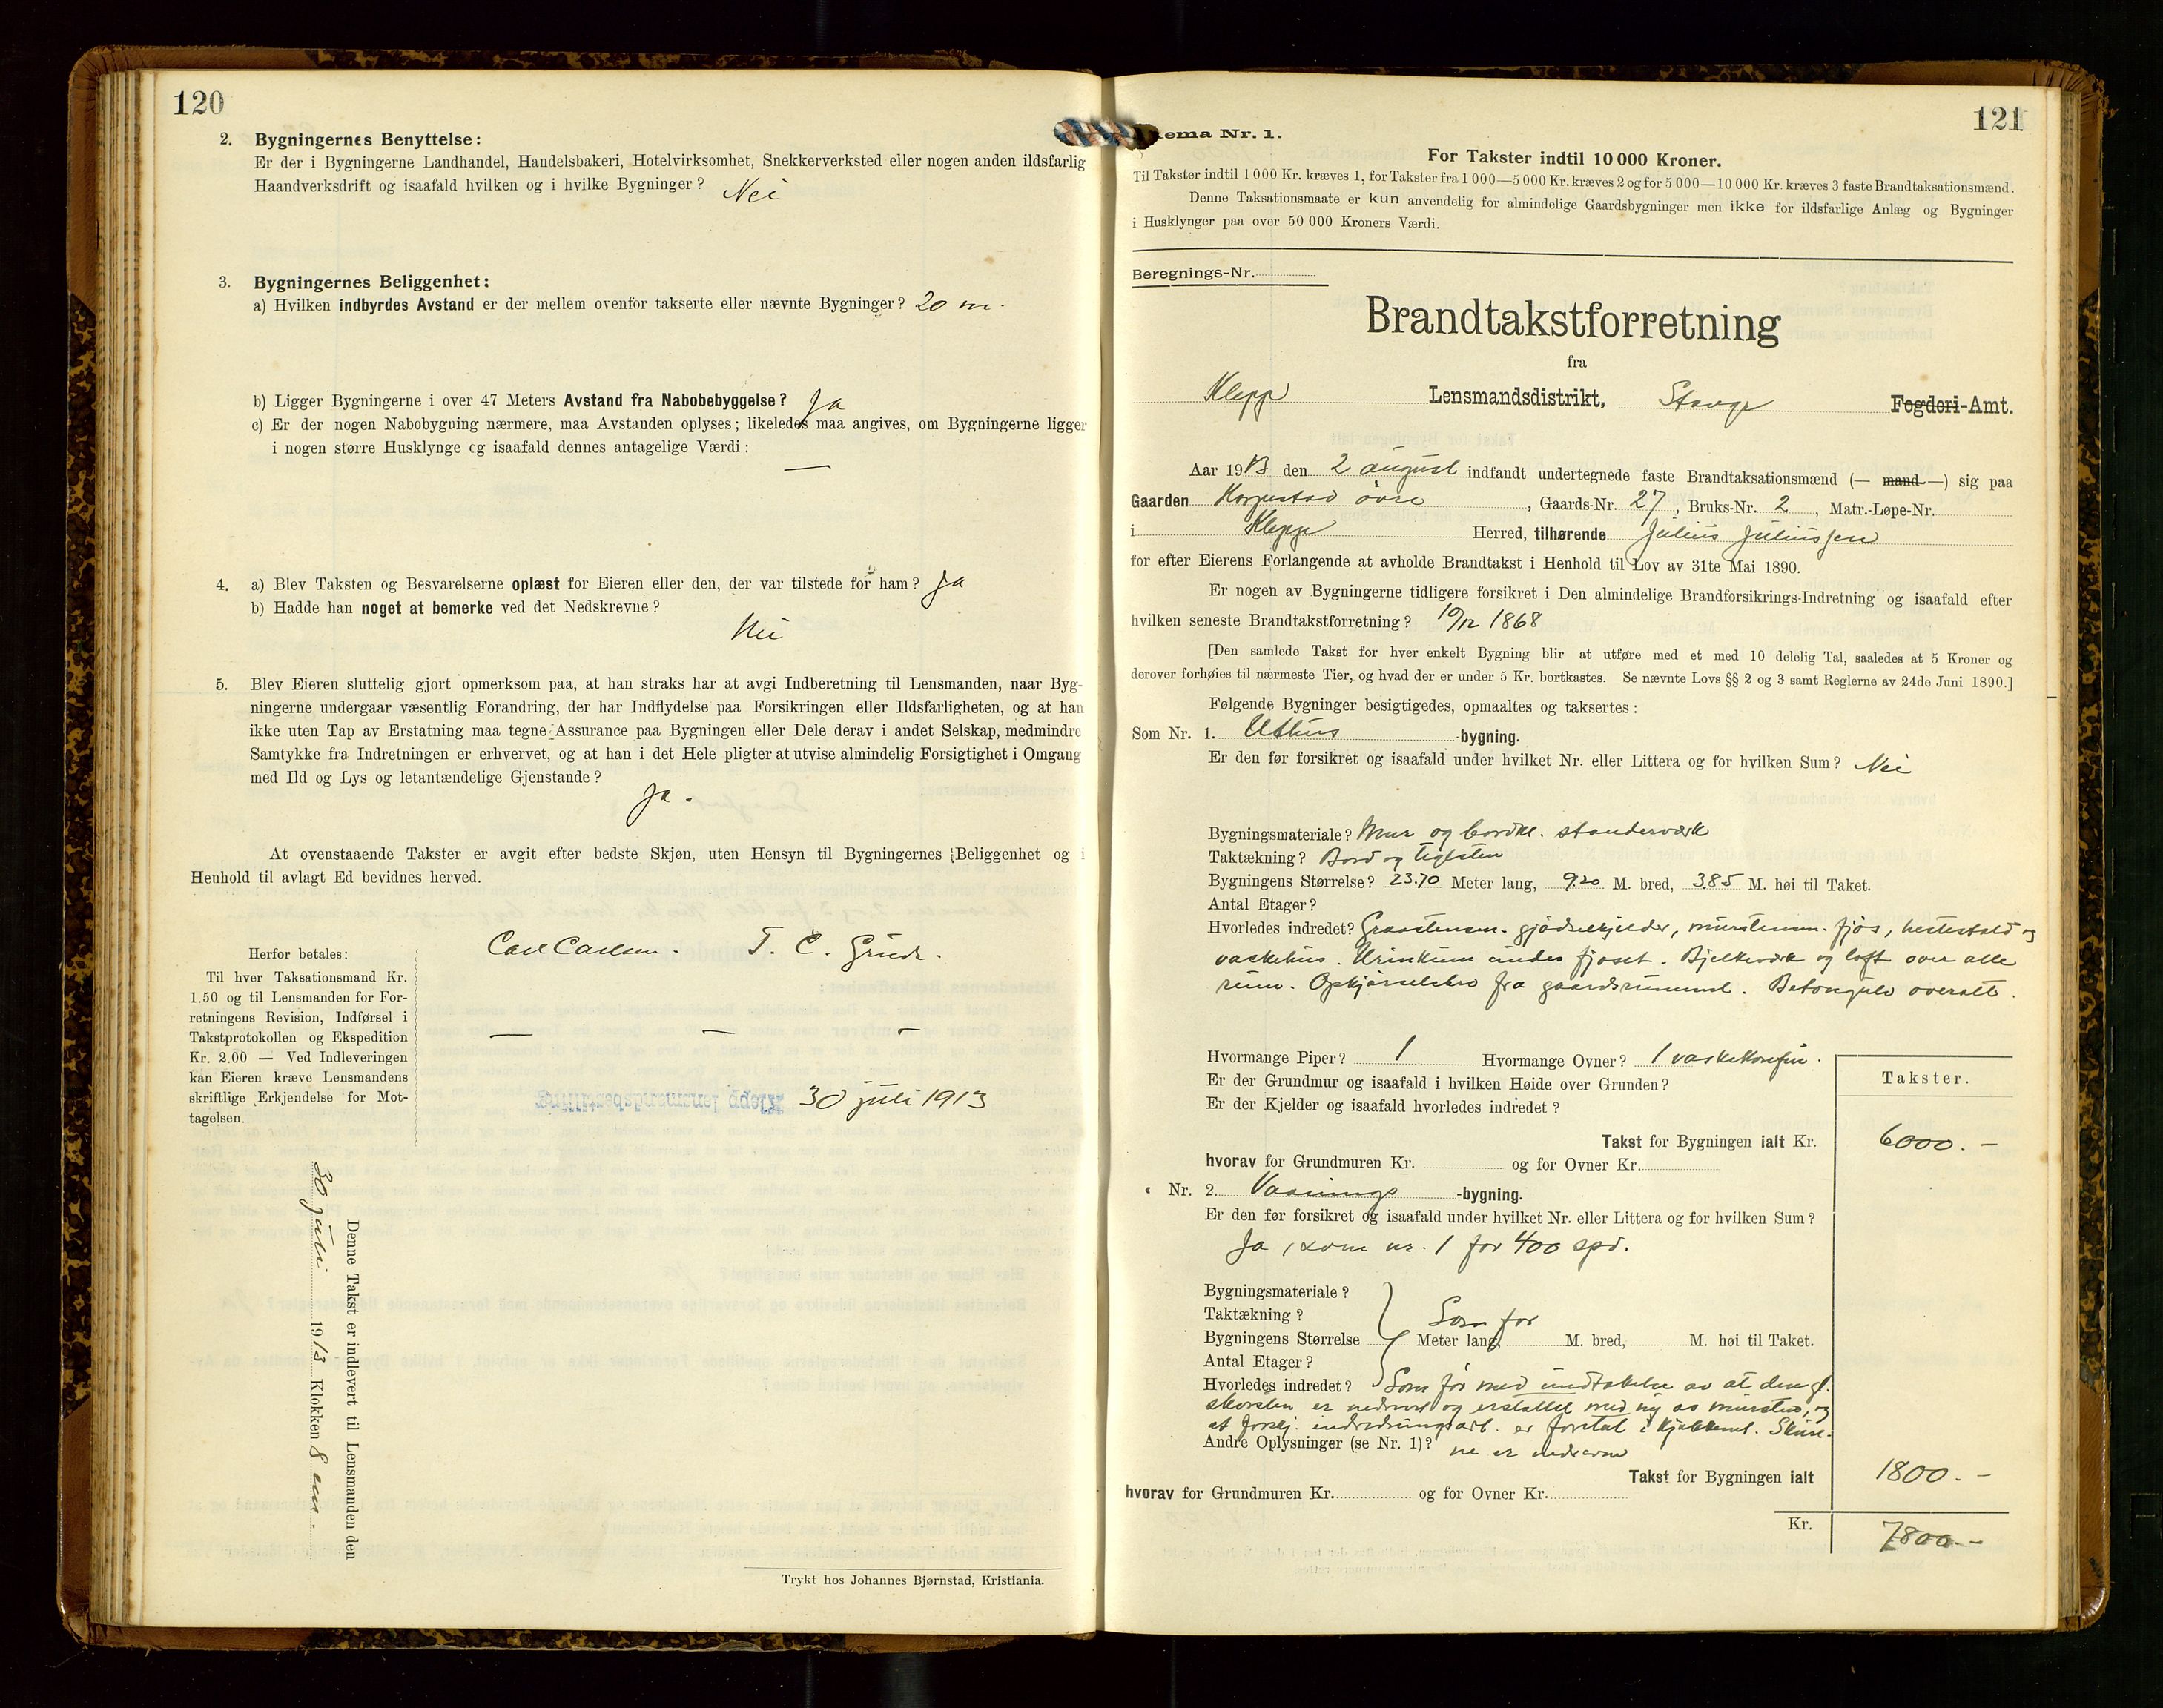 120
2. Bygningernes Benyttelse:
Er der i Bygningerne Landhandel, Handelsbakeri, Hotelvirksomhet, Snekkerverksted eller nogen anden ildsfarlig
Haandverksdrift og isaafald hvilken og i hvilke Bygninger? Nei
3. Bygningernes Beliggenhet:
a) Hvilken indbyrdes Avstand er der mellem ovenfor takserte eller nævnte Bygninger? 20 m.
b) Ligger Bygningerne i over 47 Meters Avstand fra Nabobebyggelse? Ja
c) Er der nogen Nabobygning nærmere, maa Avstanden oplyses; likeledes maa angives, om Bygningerne ligger
i nogen større Husklynge og isaafald dennes antagelige Værdi: —
4. a) Blev Taksten og Besvarelserne oplæst for Eieren eller den, der var tilstede for ham? Ja
b) Hadde han noget at bemerke ved det Nedskrevne?
Nei
5. Blev Eieren sluttelig gjort opmerksom paa, at han straks har at avgi Indberetning til Lensmanden, naar Byg-
ningerne undergaar væsentlig Forandring, der har Indflydelse paa Forsikringen eller Ildsfarligheten, og at han
ikke uten Tap av Erstatning maa tegne Assurance paa Bygningen eller Dele derav i andet Selskap, medmindre
Samtykke fra Indretningen er erhvervet, og at han i det Hele pligter at utvise almindelig Forsigtighet i Omgang
med Ild og Lys og letantændelige Gjenstande?
Ja.
At ovenstaaende Takster er avgit efter bedste Skjøn, uten Hensyn til Bygningernes Beliggenhet og i
Henhold til avlagt Ed bevidnes herved.
Carl Carlsen. T. C. Grude.
Herfor betales:
Til hver Taksationsmand Kr.
1.50 og til Lensmanden for For-
retningens Revision, Indførsel i
Takstprotokollen og Ekspedition
Kr. 2.00 — Ved Indleveringen
kan Eieren kræve Lensmandens
skriftlige Erkjendelse for Mot-
tagelsen.
— — —
Klepp lensmandsbestilling 30 juli 1913
Denne Takst er indlevert til Lensmanden den
30 juli 1913 Klokken 8 em.
Trykt hos Johannes Bjørnstad, Kristiania.
121
ema Nr. 1.
For Takster indtil 10 000 Kroner.
Til Takster indtil 1 000 Kr. kræves 1, for Takster fra 1 000—5 000 Kr. kræves 2 og for 5 000—10 000 Kr. kræves 3 faste Brandtaksationsmænd.
Denne Taksationsmaate er kun anvendelig for almindelige Gaardsbygninger men ikke for ildsfarlige Anlæg og Bygninger
i Husklynger paa over 50 000 Kroners Værdi.
Beregnings-Nr.
Brandtakstforretning
fra
Klepp Lensmandsdistrikt, Stavgr Fogderi-Amt.
Aar 1913 den 2 august indfandt undertegnede faste Brandtaksationsmænd (— mand —) sig paa
Gaarden øvre, Gaards-Nr. 27, Bruks-Nr. 2, Matr.-Løpe-Nr.
i Klepp Herred, tilhørende Julius Juliussen
for efter Eierens Forlangende at avholde Brandtakst i Henhold til Lov av 31te Mai 1890.
Er nogen av Bygningerne tidligere forsikret i Den almindelige Brandforsikrings-Indretning og isaafald efter
hvilken seneste Brandtakstforretning? 10/12 1868
[Den samlede Takst for hver enkelt Bygning blir at utføre med et med 10 delelig Tal, saaledes at 5 Kroner og
derover forhøies til nærmeste Tier, og hvad der er under 5 Kr. bortkastes. Se nævnte Lovs §§ 2 og 3 samt Reglerne av 24de Juni 1890.]
Følgende Bygninger besigtigedes, opmaaltes og taksertes:
Som Nr. 1. Uthus -bygning.
Er den før forsikret og isaafald under hvilket Nr. eller Littera og for hvilken Sum? Nei
Bygningsmateriale? Mur og bordkl. standerværk
Taktækning? Bord og teglsten
Bygningens Størrelse? 23.70 Meter lang, 9.20 M. bred, 3.85 M. høi til Taket.
Antal Etager?
Hvorledes indredet? Graastensm. gjødselkjelder, murstensm. fjøs, hestestald og
vaskehus. Urinkum under fjøset. Bjelkeværk og loft over alle
rum. Opkjørselsbro fra gaardsrummet. Betongulv overalt.
Hvormange Piper? 1 Hvormange Ovner? 1 vaskekomfur.
Er der Grundmur og isaafald i hvilken Høide over Grunden?
Er der Kjelder og isaafald hvorledes indredet?
Takster.
Takst for Bygningen ialt Kr. 6000. —
hvorav for Grundmuren Kr. og for Ovner Kr.
Nr. 2. Vaanings -bygning.
Er den før forsikret og isaafald under hvilket Nr. eller Littera og for hvilken Sum?
Ja, som nr. 1 for 400 spd.
Bygningsmateriale?
Taktækning? Som før
Bygningens Størrelse Meter lang, M. bred, M. høi til Taket.
Antal Etager?
Hvorledes indredet? Som før med undtakelse av at den gl.
skorsten er nedrevet og erstattet med ny av mursten, og
at forskj. indredningsarb. er foretat i kjøkkenet. Skure-
Andre Oplysninger (se Nr. 1)? ne er nedrevne
Takst for Bygningen ialt 1800. —
hvorav for Grundmuren Kr. og for Ovner Kr.
Kr. 7800. —